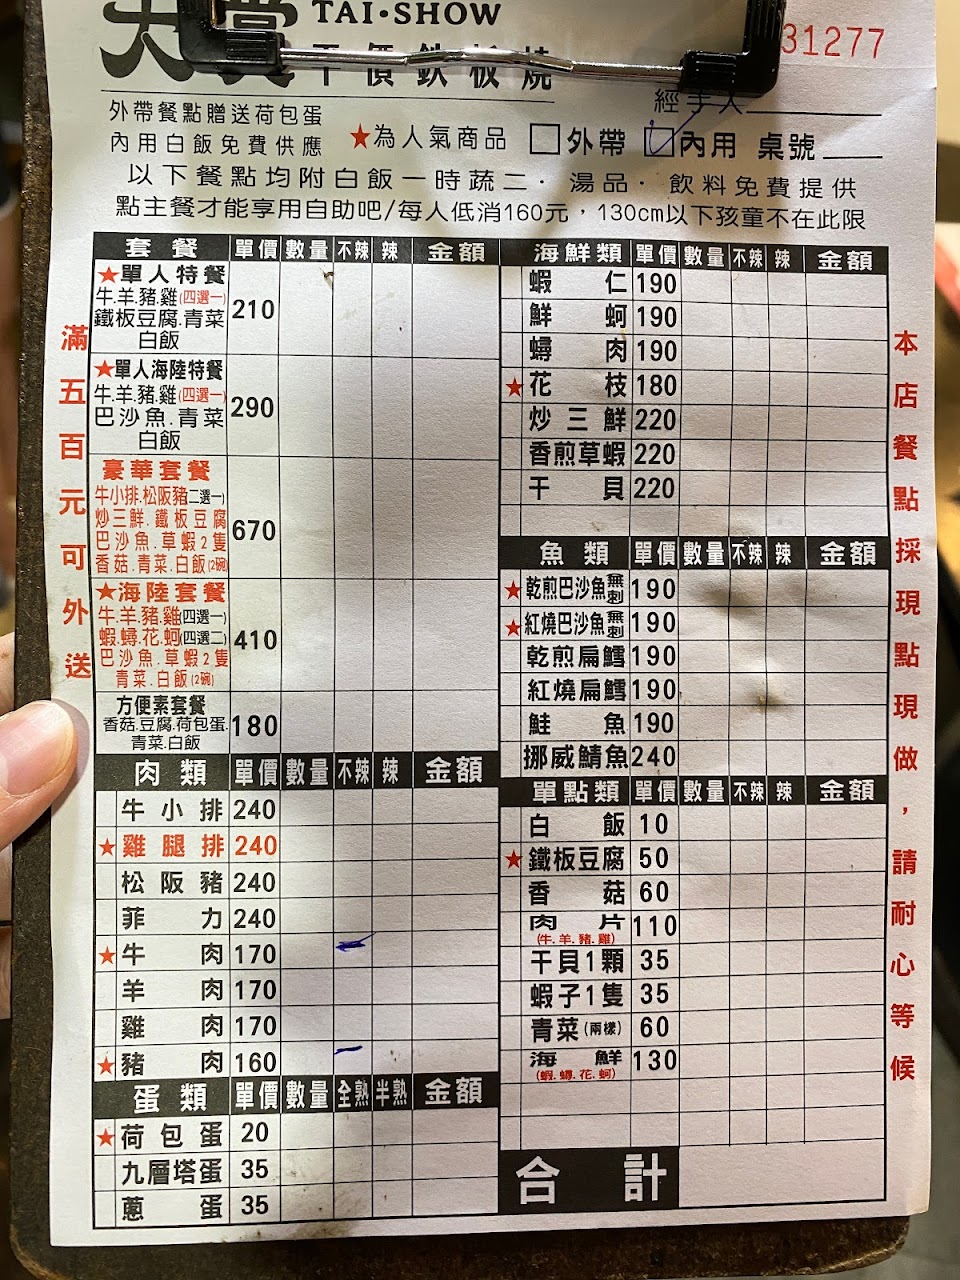 TAI·SHOW
平價鉄板燒
31277
經手人
外帶餐點贈送荷包蛋
內用白飯免費供應
★為人氣商品 □外帶 ☑內用 桌號
以下餐點均附白飯一時蔬二．湯品．飲料免費提供
點主餐才能享用自助吧/每人低消160元，130cm以下孩童不在此限
滿五百元可外送
套餐 單價 數量 不辣 辣 金額
★單人特餐
牛.羊.豬.雞(四選一)
鐵板豆腐.青菜
白飯
210
★單人海陸特餐
牛.羊.豬.雞(四選一)
巴沙魚.青菜
白飯
290
豪華套餐
牛小排.松阪豬(二選一)
炒三鮮.鐵板豆腐
巴沙魚.草蝦2隻
香菇.青菜.白飯(2碗)
670
★海陸套餐
牛.羊.豬.雞(四選一)
蝦.蟳.花.蚵(四選二)
巴沙魚.草蝦2隻
青菜.白飯(2碗)
410
方便素套餐
香菇.豆腐.荷包蛋.
青菜.白飯
180
肉類 單價 數量 不辣 辣 金額
牛小排 240
★雞腿排 240
松阪豬 240
菲力 240
★牛肉 170
羊肉 170
雞肉 170
★豬肉 160
蛋類 單價 數量 全熟 半熟 金額
★荷包蛋 20
九層塔蛋 35
蔥蛋 35
海鮮類 單價 數量 不辣 辣 金額
蝦仁 190
鮮蚵 190
蟳肉 190
★花枝 180
炒三鮮 220
香煎草蝦 220
干貝 220
魚類 單價 數量 不辣 辣 金額
★乾煎巴沙魚無刺 190
★紅燒巴沙魚無刺 190
乾煎扁鱈 190
紅燒扁鱈 190
鮭魚 190
挪威鯖魚 240
單點類 單價 數量 不辣 辣 金額
白飯 10
★鐵板豆腐 50
香菇 60
肉片 110
(牛.羊.豬.雞)
干貝1顆 35
蝦子1隻 35
青菜(兩樣) 60
海鮮 130
(蝦.蟳.花.蚵)
合計
本店餐點採現點現做，請耐心等候